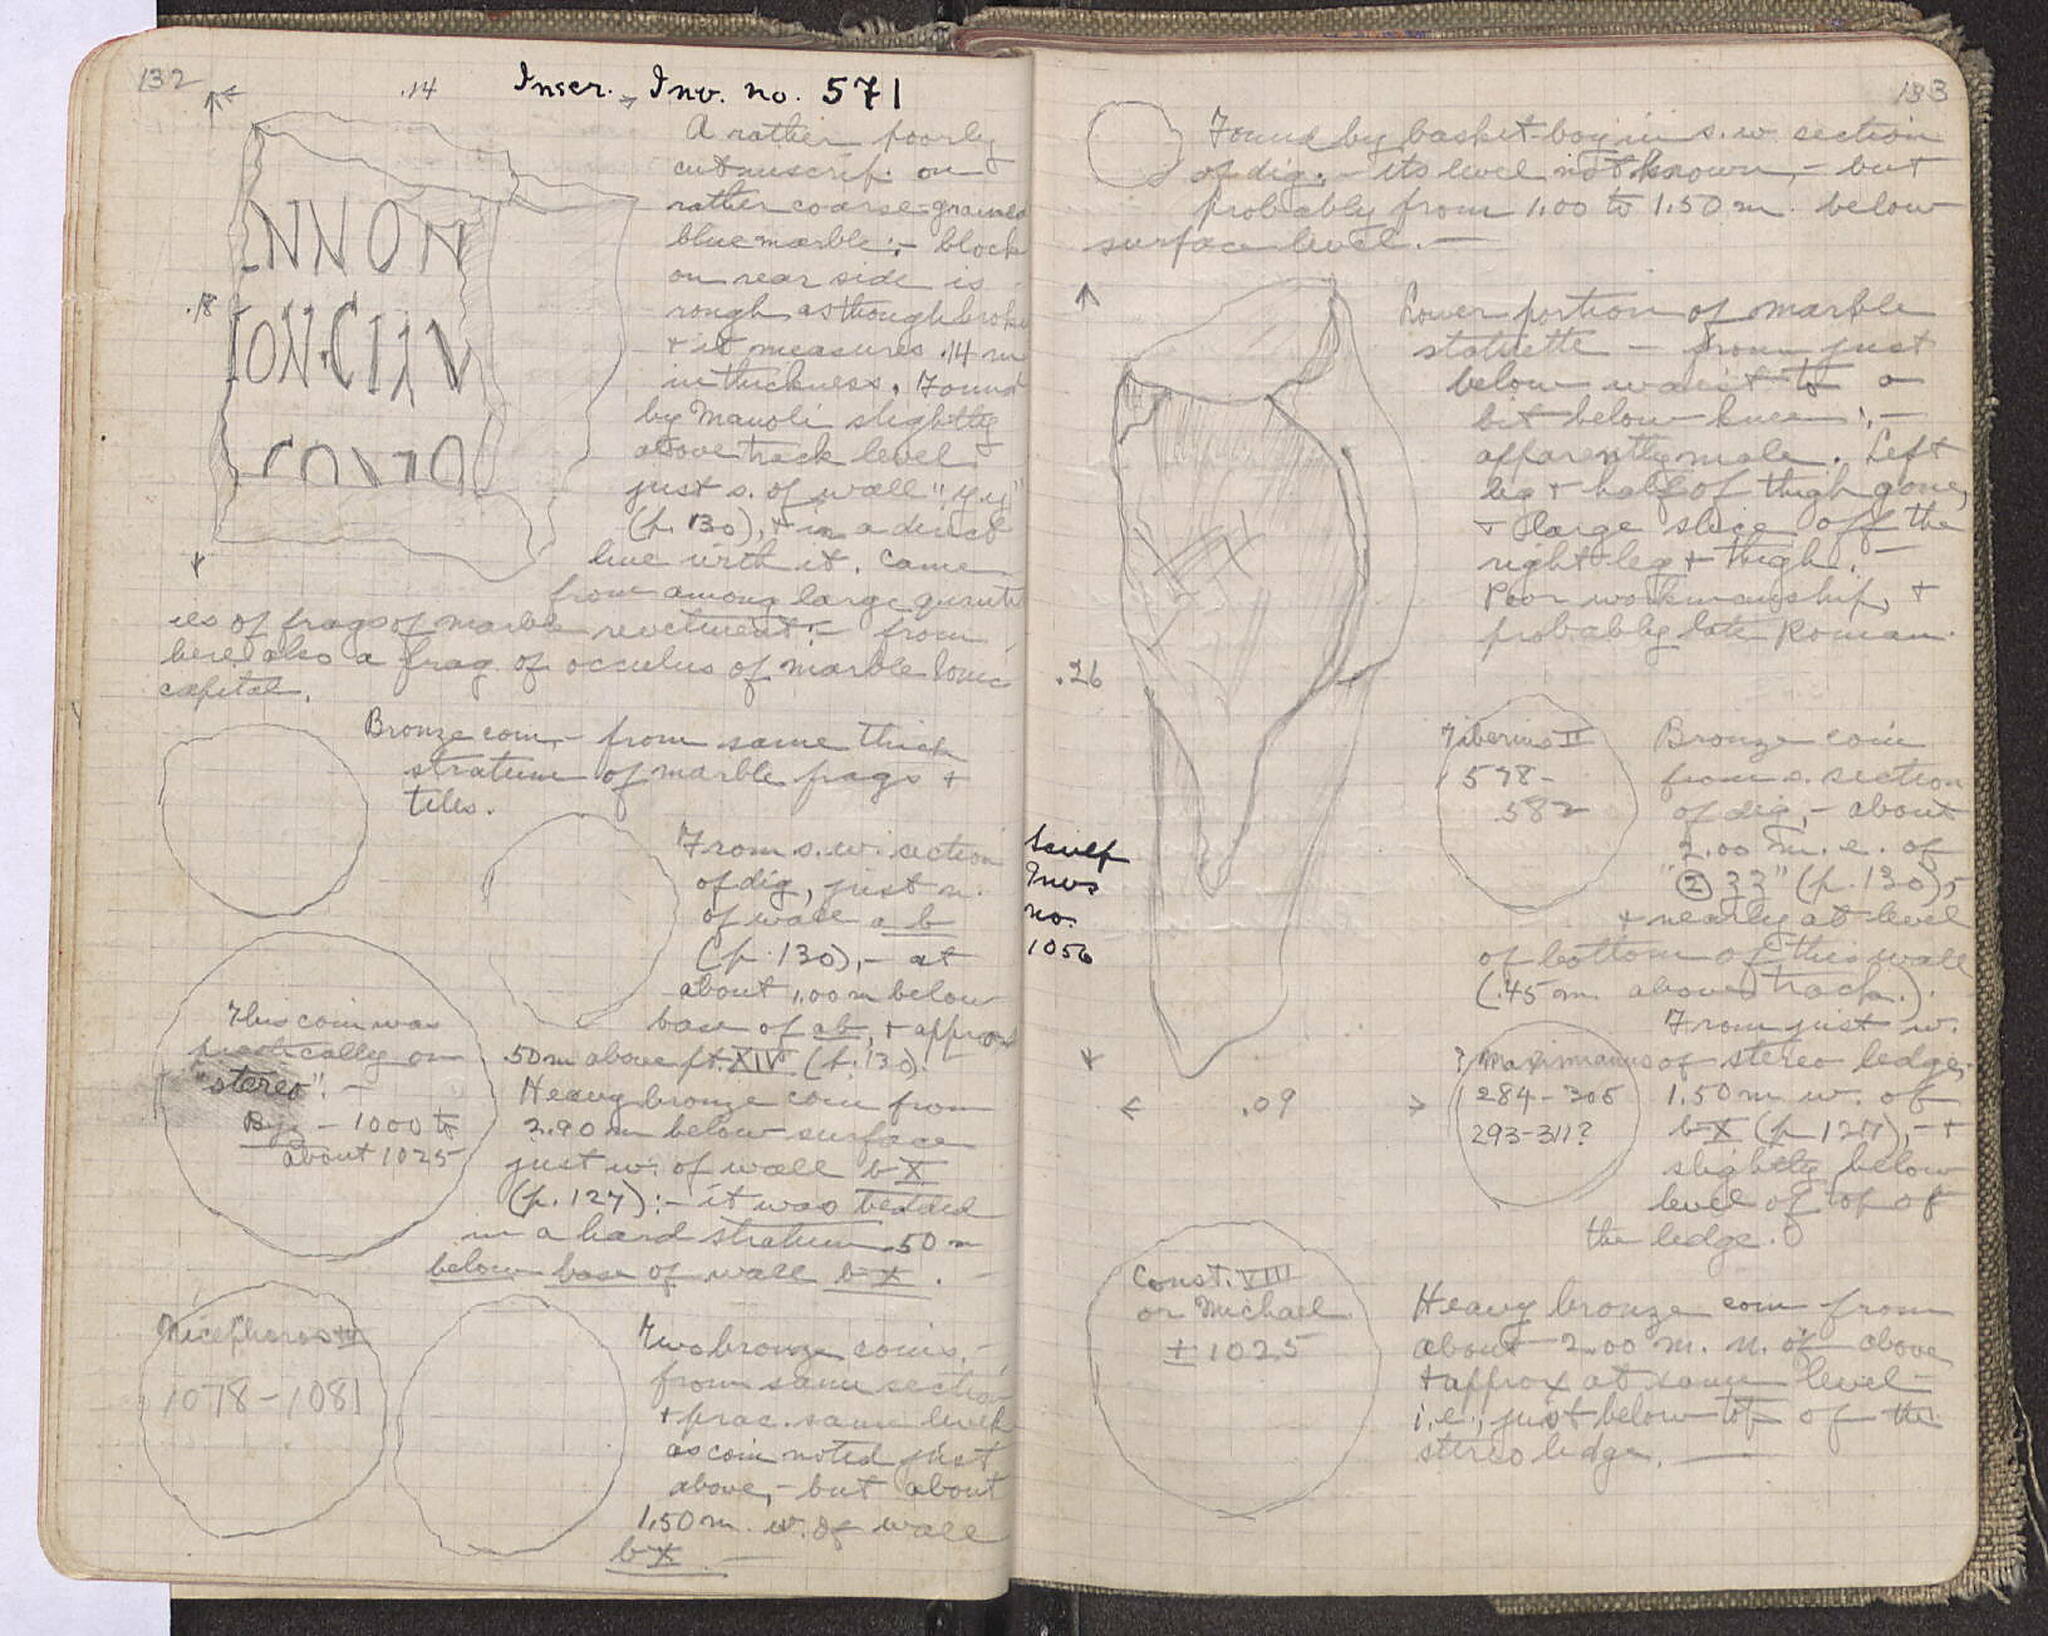 132
.14
Inscr. Inv. no. 571
A rather poorly
cut inscrip. on
rather coarse-grained
blue marble:- block
on rear side is
rough as though broke
+ it measures .14 m
in thickness. Found
by Manoli slightly
above track level
just s. of wall "y.y"
(p. 130), + in a direct
line with it. Came
from among large quanti
ies of frags of marble revetment:- from
here also a frag. of occulus of marble Ionic
capital.
.18
NNON
ION
Bronze coin,- from same thick
stratum of marble frags +
tiles.
From s.w. section
of dig, just n.
of wall a b
(p. 130),- at
about 1.00 m below
base of ab, + approx
.50 m above pt. XIV (p. 130).
This coin was
practically on
"stereo".-
Byz - 1000 to
about 1025
Heavy bronze coin from
2.90 m below surface
just w. of wall b X
(p. 127):- it was bedded
in a hard stratum .50 m
below base of wall b X. -
Nicephoros III
1078-1081
Two bronze coins,-
from same section
+ prac. same level
as coin noted just
above,- but about
1.50 m. w. of wall
b X. -
133
Found by basket-boy in s.w. section
of dig,- its level not known,- but
probably from 1.00 to 1.50 m. below
surface level.-
Lower portion of marble
statuette - from just
below waist to a
bit below knee:-
apparently male. Left
leg + half of thigh gone,
+ large slice off the
right leg + thigh.-
Poor workmanship, +
probably late Roman.
.26
.09
Sculp
Inv.
no.
1056
Tiberius II
578-
582
Bronze coin
from s. section
of dig,- about
2.00 m. e. of
"② zz" (p. 130),
+ nearly at level
of bottom of this wall
(.45 m. above track.).
? Maximianus
284-305
293-311?
From just w.
of stereo ledge,
1.50 m w. of
b X (p 127),- +
slightly below
level of top of
the ledge.
Const. VIII
or Michael
± 1025
Heavy bronze coin from
about 2.00 m. n. of above
+ approx at same level -
i.e., just below top of the
stereo ledge. -